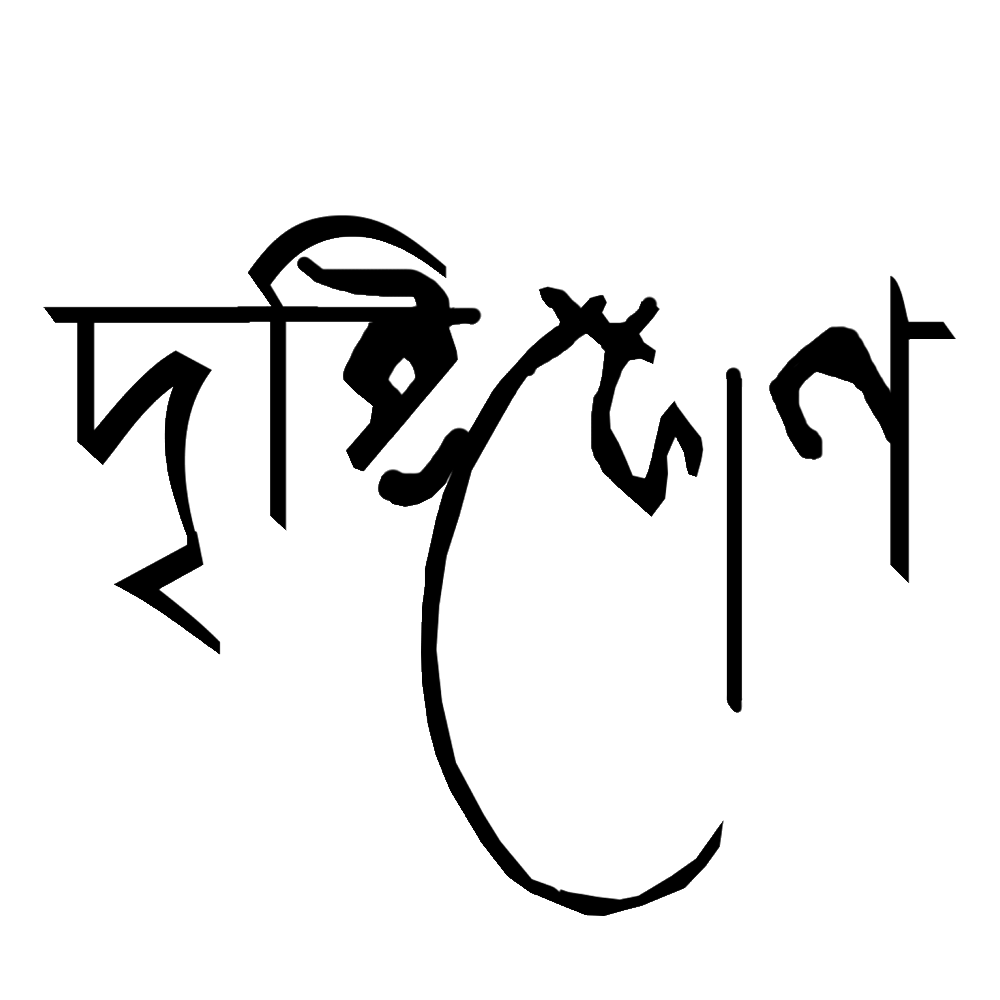 দৃষ্টিকোণ